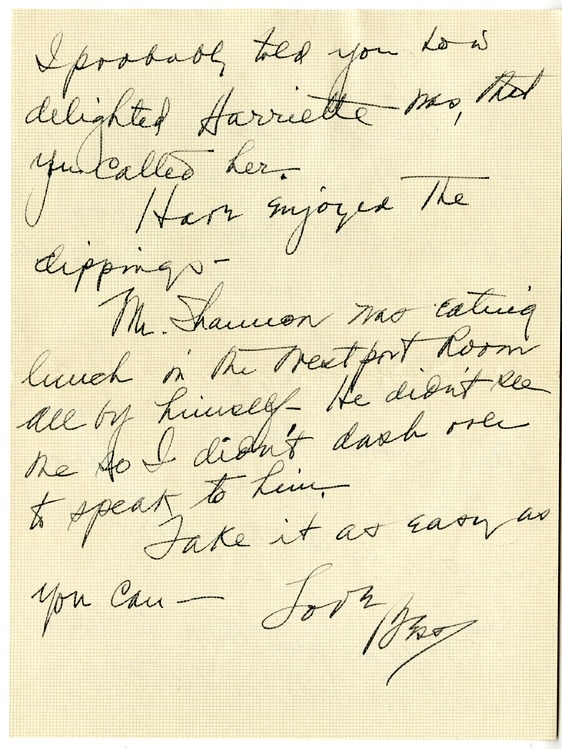 I probably told you how
delighted Harriette was, that
you called her.
Have enjoyed the
clippings-
Mr. Shannon was eating
lunch in the Westport Room
all by himself- He didn't see
me so I didn't dash over
to speak to him.
Take it as easy as
you can— Love
Bess